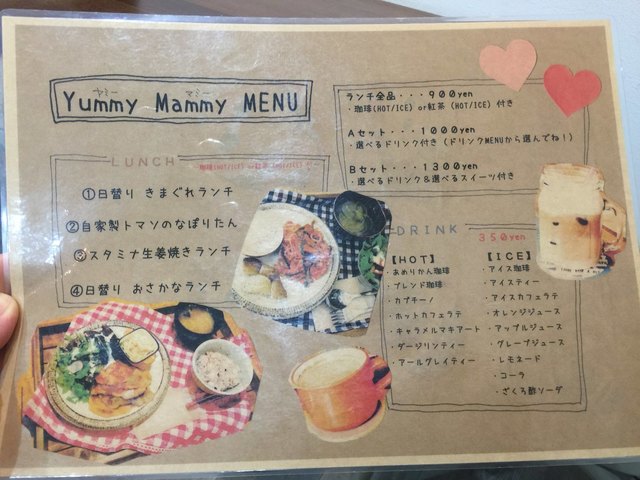 ヤミー マミー
Yummy Mammy MENU
LUNCH
①日替り きまぐれランチ
②自家製トマソのなぽりたん
③スタミナ生姜焼きランチ
④日替り おさかなランチ
ランチ全品・・・900yen
・珈琲(HOT/ICE) or紅茶 (HOT/ICE) 付き
Aセット・・・1000yen
・選べるドリンク付き (ドリンクMENUから選んでね!)
Bセット・・・1300yen
・選べるドリンク&選べるスイーツ付き
DRINK 350yen
【HOT】
・あめりかん珈琲
・ブレンド珈琲
・カプチーノ
・ホットカフェラテ
・キャラメルマキアート
・ダージリンティー
・アールグレイティー
【ICE】
・アイス珈琲
・アイスティー
・アイスカフェラテ
・オレンジジュース
・アップルジュース
・グレープジュース
・レモネード
・コーラ
・ざくろ酢ソーダ